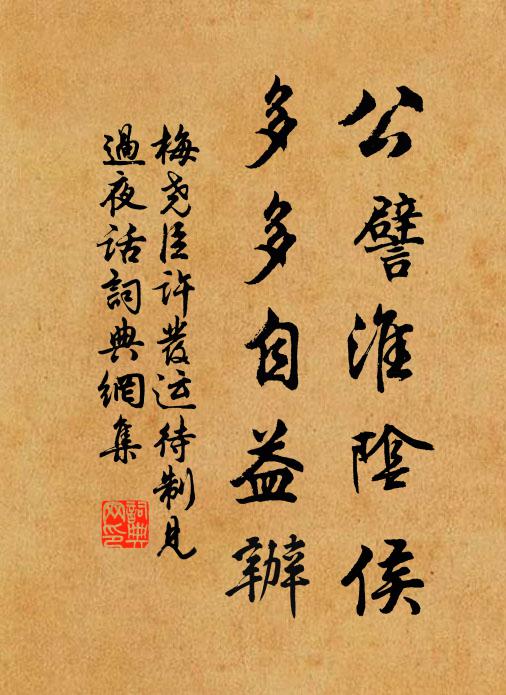 公譬淮陰侯
多多自益辦
梅尧臣許發运待制見
過夜话詞典網集
詞典网印